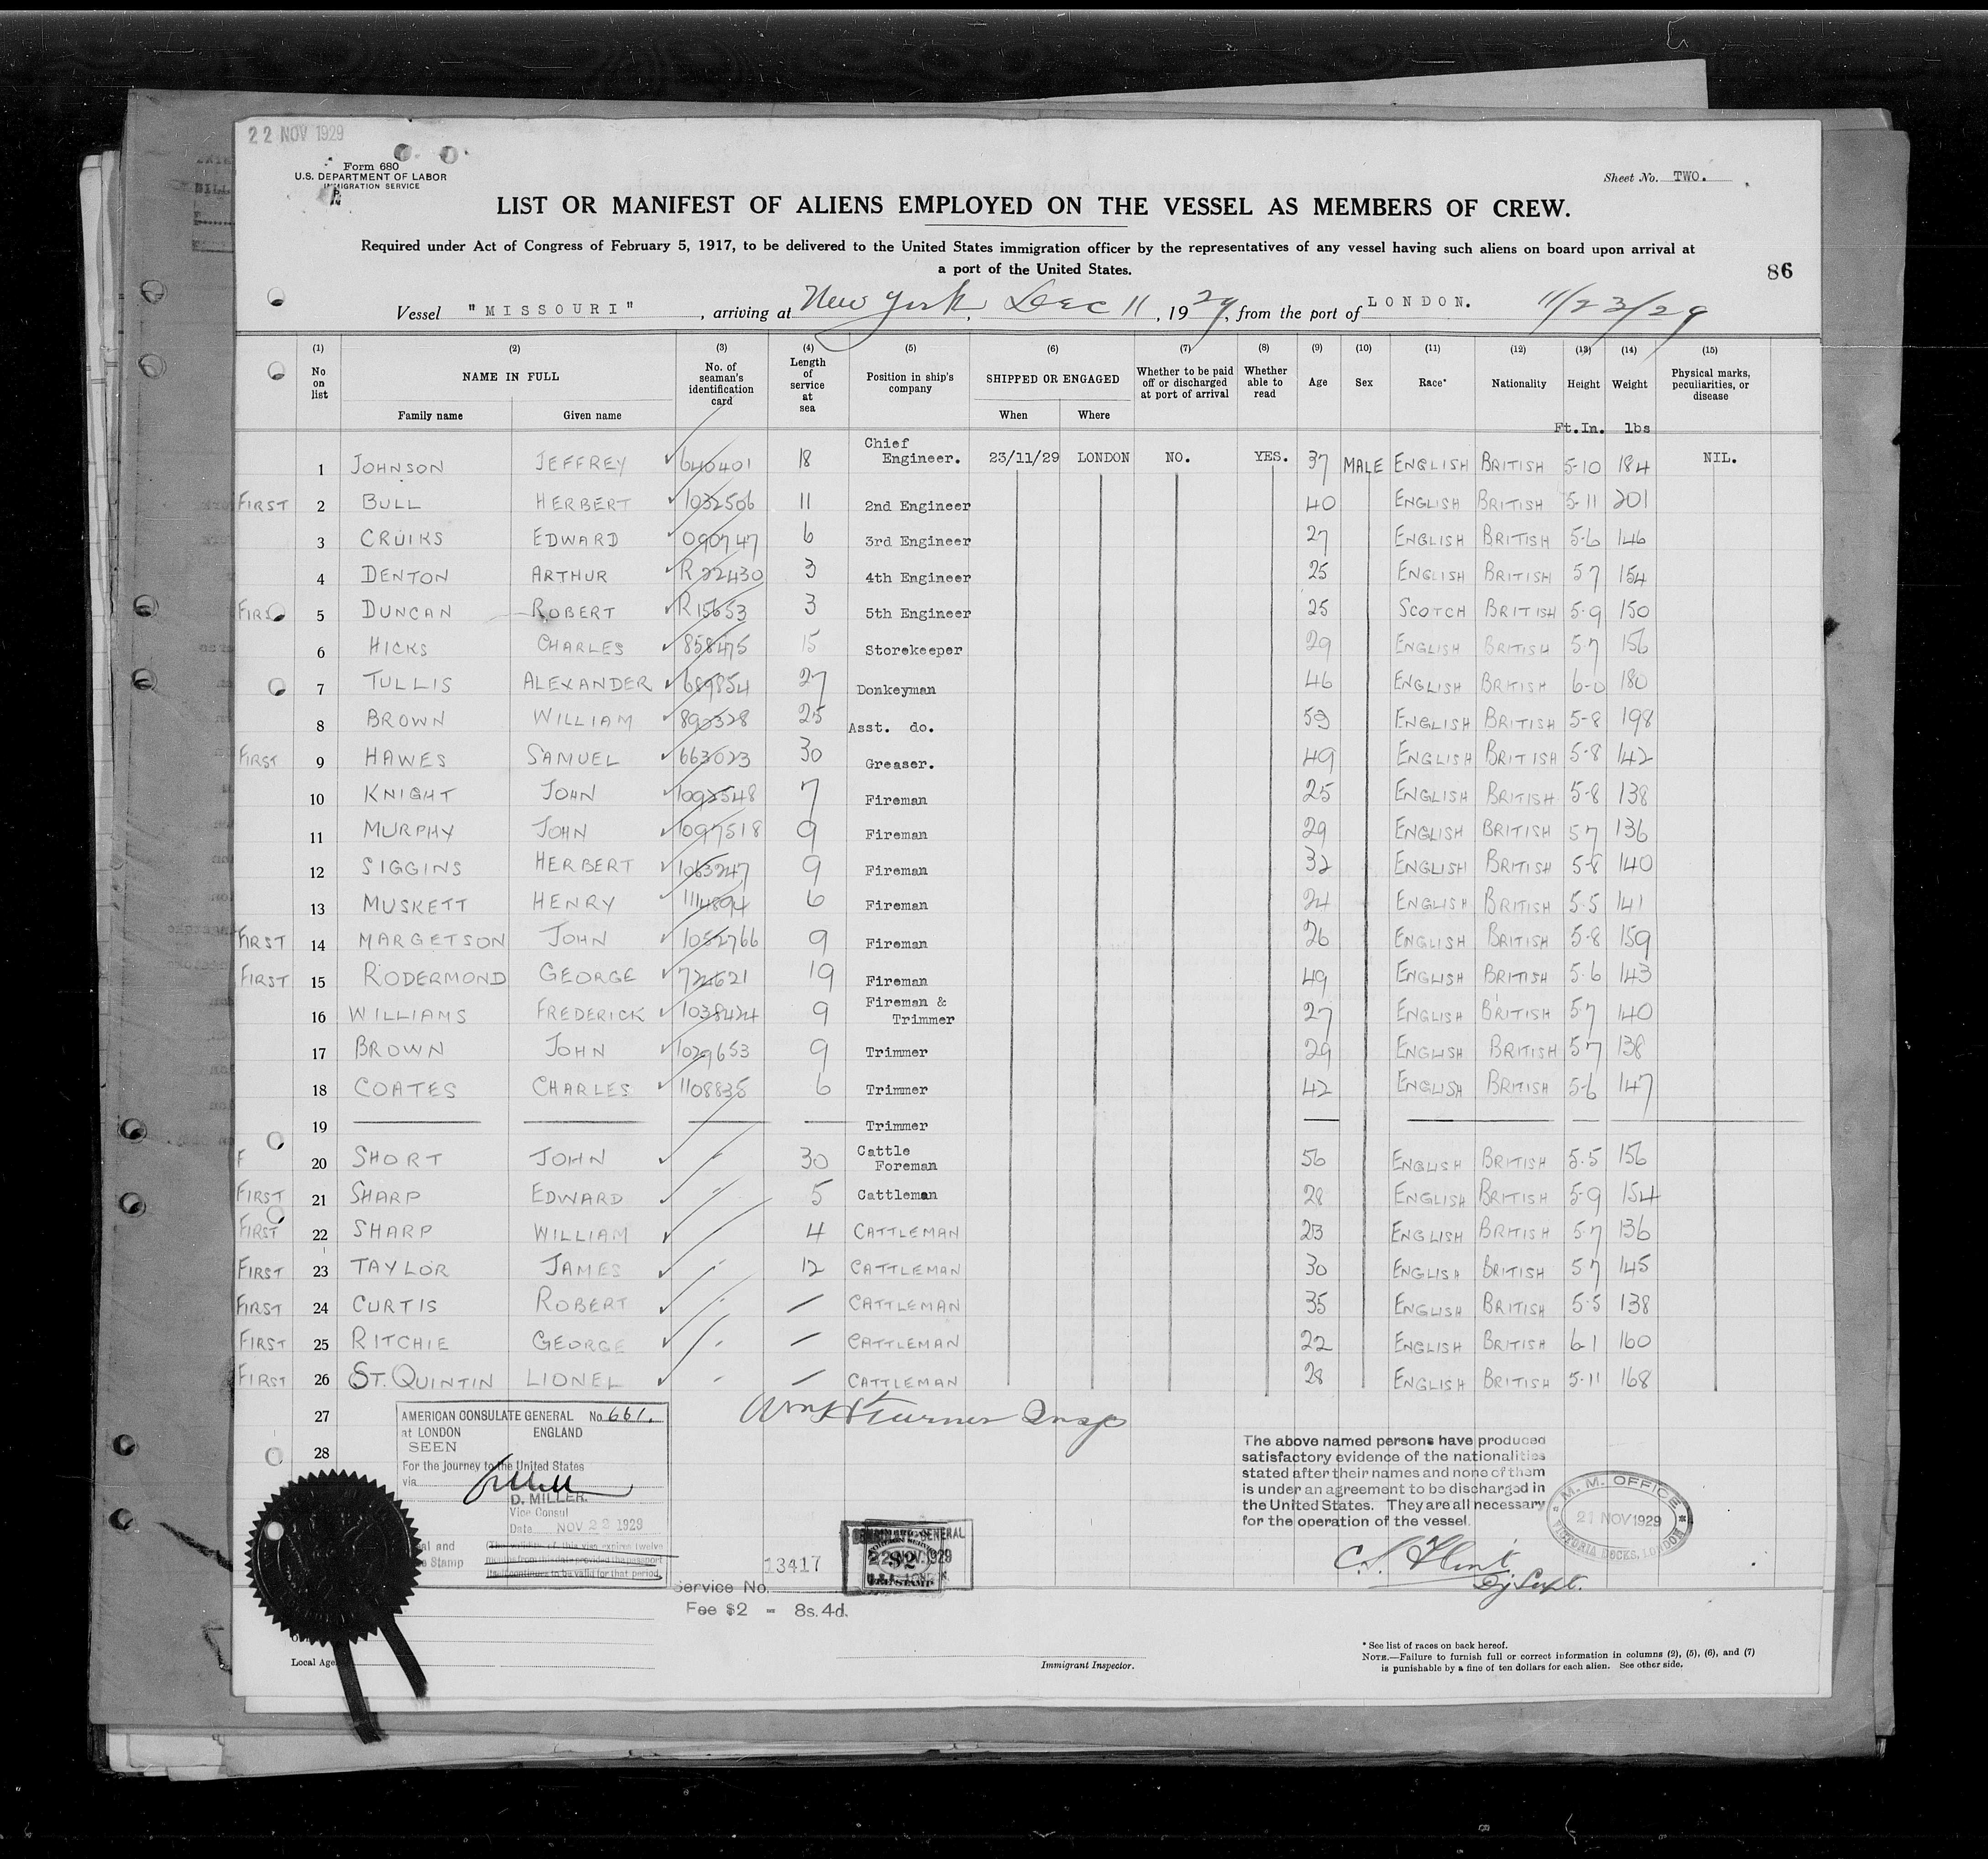 22 NOV 1929
Form 680
U.S. DEPARTMENT OF LABOR
IMMIGRATION SERVICE
Sheet No. TWO.
LIST OR MANIFEST OF ALIENS EMPLOYED ON THE VESSEL AS MEMBERS OF CREW.
Required under Act of Congress of February 5, 1917, to be delivered to the United States immigration officer by the representatives of any vessel having such aliens on board upon arrival at
a port of the United States.
86
Vessel "MISSOURI", arriving at New York, Dec 11, 1929, from the port of LONDON. 11/23/29
(1) (2) (3) (4) (5) (6) (7) (8) (9) (10) (11) (12) (13) (14) (15)
No on list NAME IN FULL Family name Given name No. of seaman's identification card Length of service at sea Position in ship's company SHIPPED OR ENGAGED When Where Whether to be paid off or discharged at port of arrival Whether able to read Age Sex Race* Nationality Height Weight Physical marks, peculiarities, or disease
Ft.In. lbs
1 JOHNSON JEFFREY 640401 18 Chief Engineer. 23/11/29 LONDON NO. YES. 37 MALE ENGLISH BRITISH 5-10 184 NIL.
FIRST 2 BULL HERBERT 1032506 11 2nd Engineer 40 ENGLISH BRITISH 5-11 201
3 CRUIKS EDWARD 090747 6 3rd Engineer 27 ENGLISH BRITISH 5-6 146
4 DENTON ARTHUR R 22430 3 4th Engineer 25 ENGLISH BRITISH 5 7 154
FIRST 5 DUNCAN ROBERT R15653 3 5th Engineer 25 SCOTCH BRITISH 5-9 150
6 HICKS CHARLES 858475 15 Storekeeper 29 ENGLISH BRITISH 5-7 156
7 TULLIS ALEXANDER 689854 27 Donkeyman 46 ENGLISH BRITISH 6-0 180
8 BROWN WILLIAM 890328 25 Asst. do. 53 ENGLISH BRITISH 5-8 198
FIRST 9 HAWES SAMUEL 663023 30 Greaser. 49 ENGLISH BRITISH 5-8 142
10 KNIGHT JOHN 1092548 7 Fireman 25 ENGLISH BRITISH 5-8 138
11 MURPHY JOHN 1097518 9 Fireman 29 ENGLISH BRITISH 5 7 136
12 SIGGINS HERBERT 1063247 9 Fireman 32 ENGLISH BRITISH 5-8 140
13 MUSKETT HENRY 1114894 6 Fireman 24 ENGLISH BRITISH 5.5 141
FIRST 14 MARGETSON JOHN 1052766 9 Fireman 26 ENGLISH BRITISH 5-8 159
FIRST 15 RODERMOND GEORGE 724621 19 Fireman 49 ENGLISH BRITISH 5.6 143
16 WILLIAMS FREDERICK 1038424 9 Fireman & Trimmer 27 ENGLISH BRITISH 5-7 140
17 BROWN JOHN 1029653 9 Trimmer 29 ENGLISH BRITISH 5 7 138
18 COATES CHARLES 1108835 6 Trimmer 42 ENGLISH BRITISH 5-6 147
19 Trimmer
F 20 SHORT JOHN 30 Cattle Foreman 56 ENGLISH BRITISH 5.5 156
FIRST 21 SHARP EDWARD 5 Cattleman 28 ENGLISH BRITISH 5-9 154
FIRST 22 SHARP WILLIAM 4 CATTLEMAN 23 ENGLISH BRITISH 5-7 136
FIRST 23 TAYLOR JAMES 12 CATTLEMAN 30 ENGLISH BRITISH 5 7 145
FIRST 24 CURTIS ROBERT CATTLEMAN 35 ENGLISH BRITISH 5-5 138
FIRST 25 RITCHIE GEORGE CATTLEMAN 22 ENGLISH BRITISH 6 1 160
FIRST 26 ST. QUINTIN LIONEL CATTLEMAN 28 ENGLISH BRITISH 5-11 168
27
28
Wm H Turner Insp
AMERICAN CONSULATE GENERAL No. 661.
at LONDON ENGLAND
SEEN
For the journey to the United States
via
D. MILLER.
Vice Consul
Date NOV 22 1929
(The validity of this visa expires twelve
months from this date provided the passport
itself continues to be valid for that period.
al and
Stamp
Service No. 13417
Fee $2 = 8s. 4d.
GENERAL
22 NOV. 1929
$2
The above named persons have produced
satisfactory evidence of the nationalities
stated after their names and none of them
is under an agreement to be discharged in
the United States. They are all necessary
for the operation of the vessel.
M. M. OFFICE
21 NOV 1929
VICTORIA DOCKS, LONDON
Dy Supt.
Local Age
Immigrant Inspector.
* See list of races on back hereof.
NOTE.—Failure to furnish full or correct information in columns (2), (5), (6), and (7)
is punishable by a fine of ten dollars for each alien. See other side.